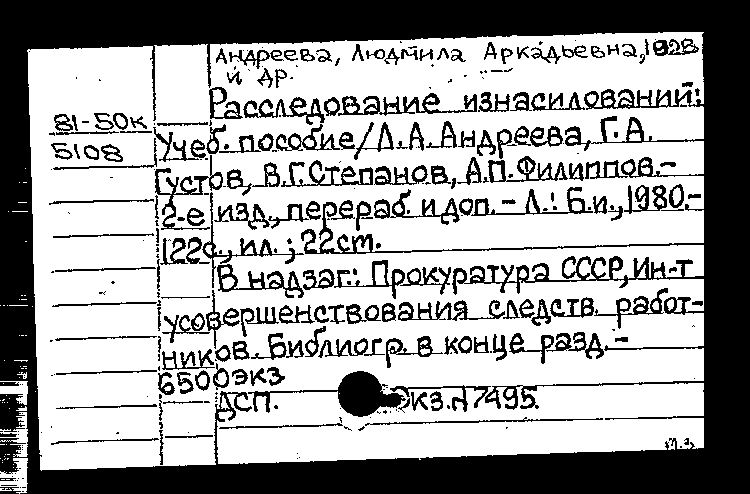 Андреева, Людмила Аркадьевна, 1928
и др.
Расследование изнасилований:
81-50к
5108
Учеб. пособие/Л.А.Андреева, Г.А.
Густов, В.Г.Степанов, А.П.Филиппов.-
2-е изд., перераб. и доп. - Л.: Б.и., 1980.-
122с., ил.; 22см.
В надзаг.: Прокуратура СССР, Ин-т
усовершенствования следств. работ-
ников. Библиогр. в конце разд. -
6500экз
ДСП. Экз.N7495.